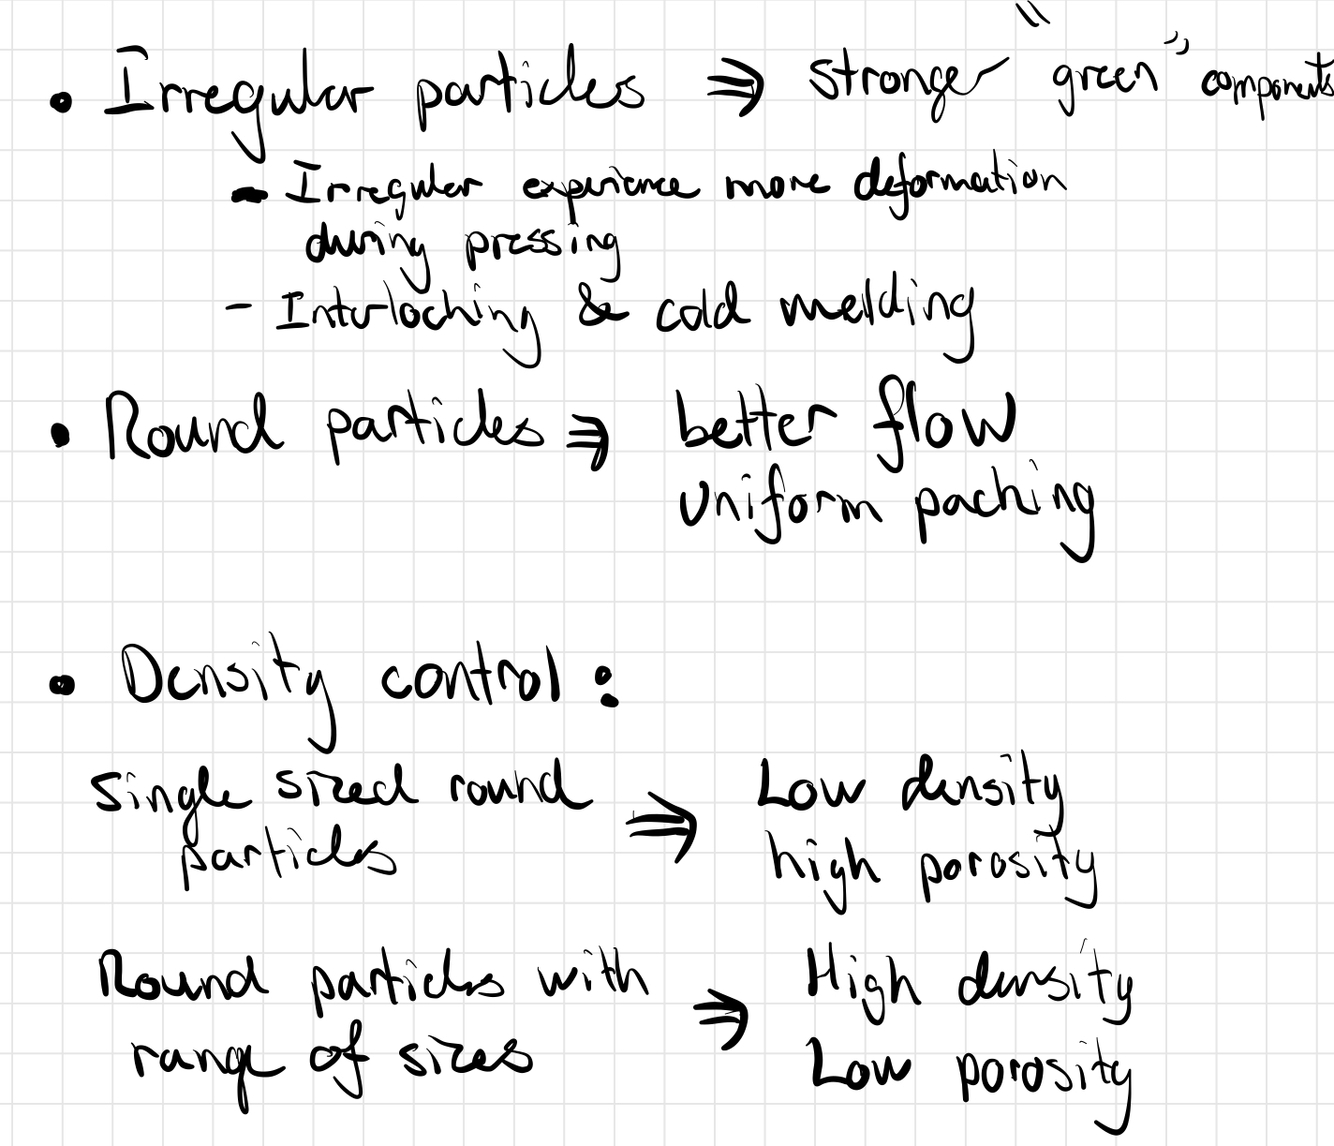 • Irregular particles ⇒ stronger "green" components
- Irregular experience more deformation
during pressing
- Interlocking & cold welding
• Round particles ⇒ better flow
uniform packing
• Density control:
Single sized round ⇒ Low density
particles high porosity
Round particles with ⇒ High density
range of sizes Low porosity